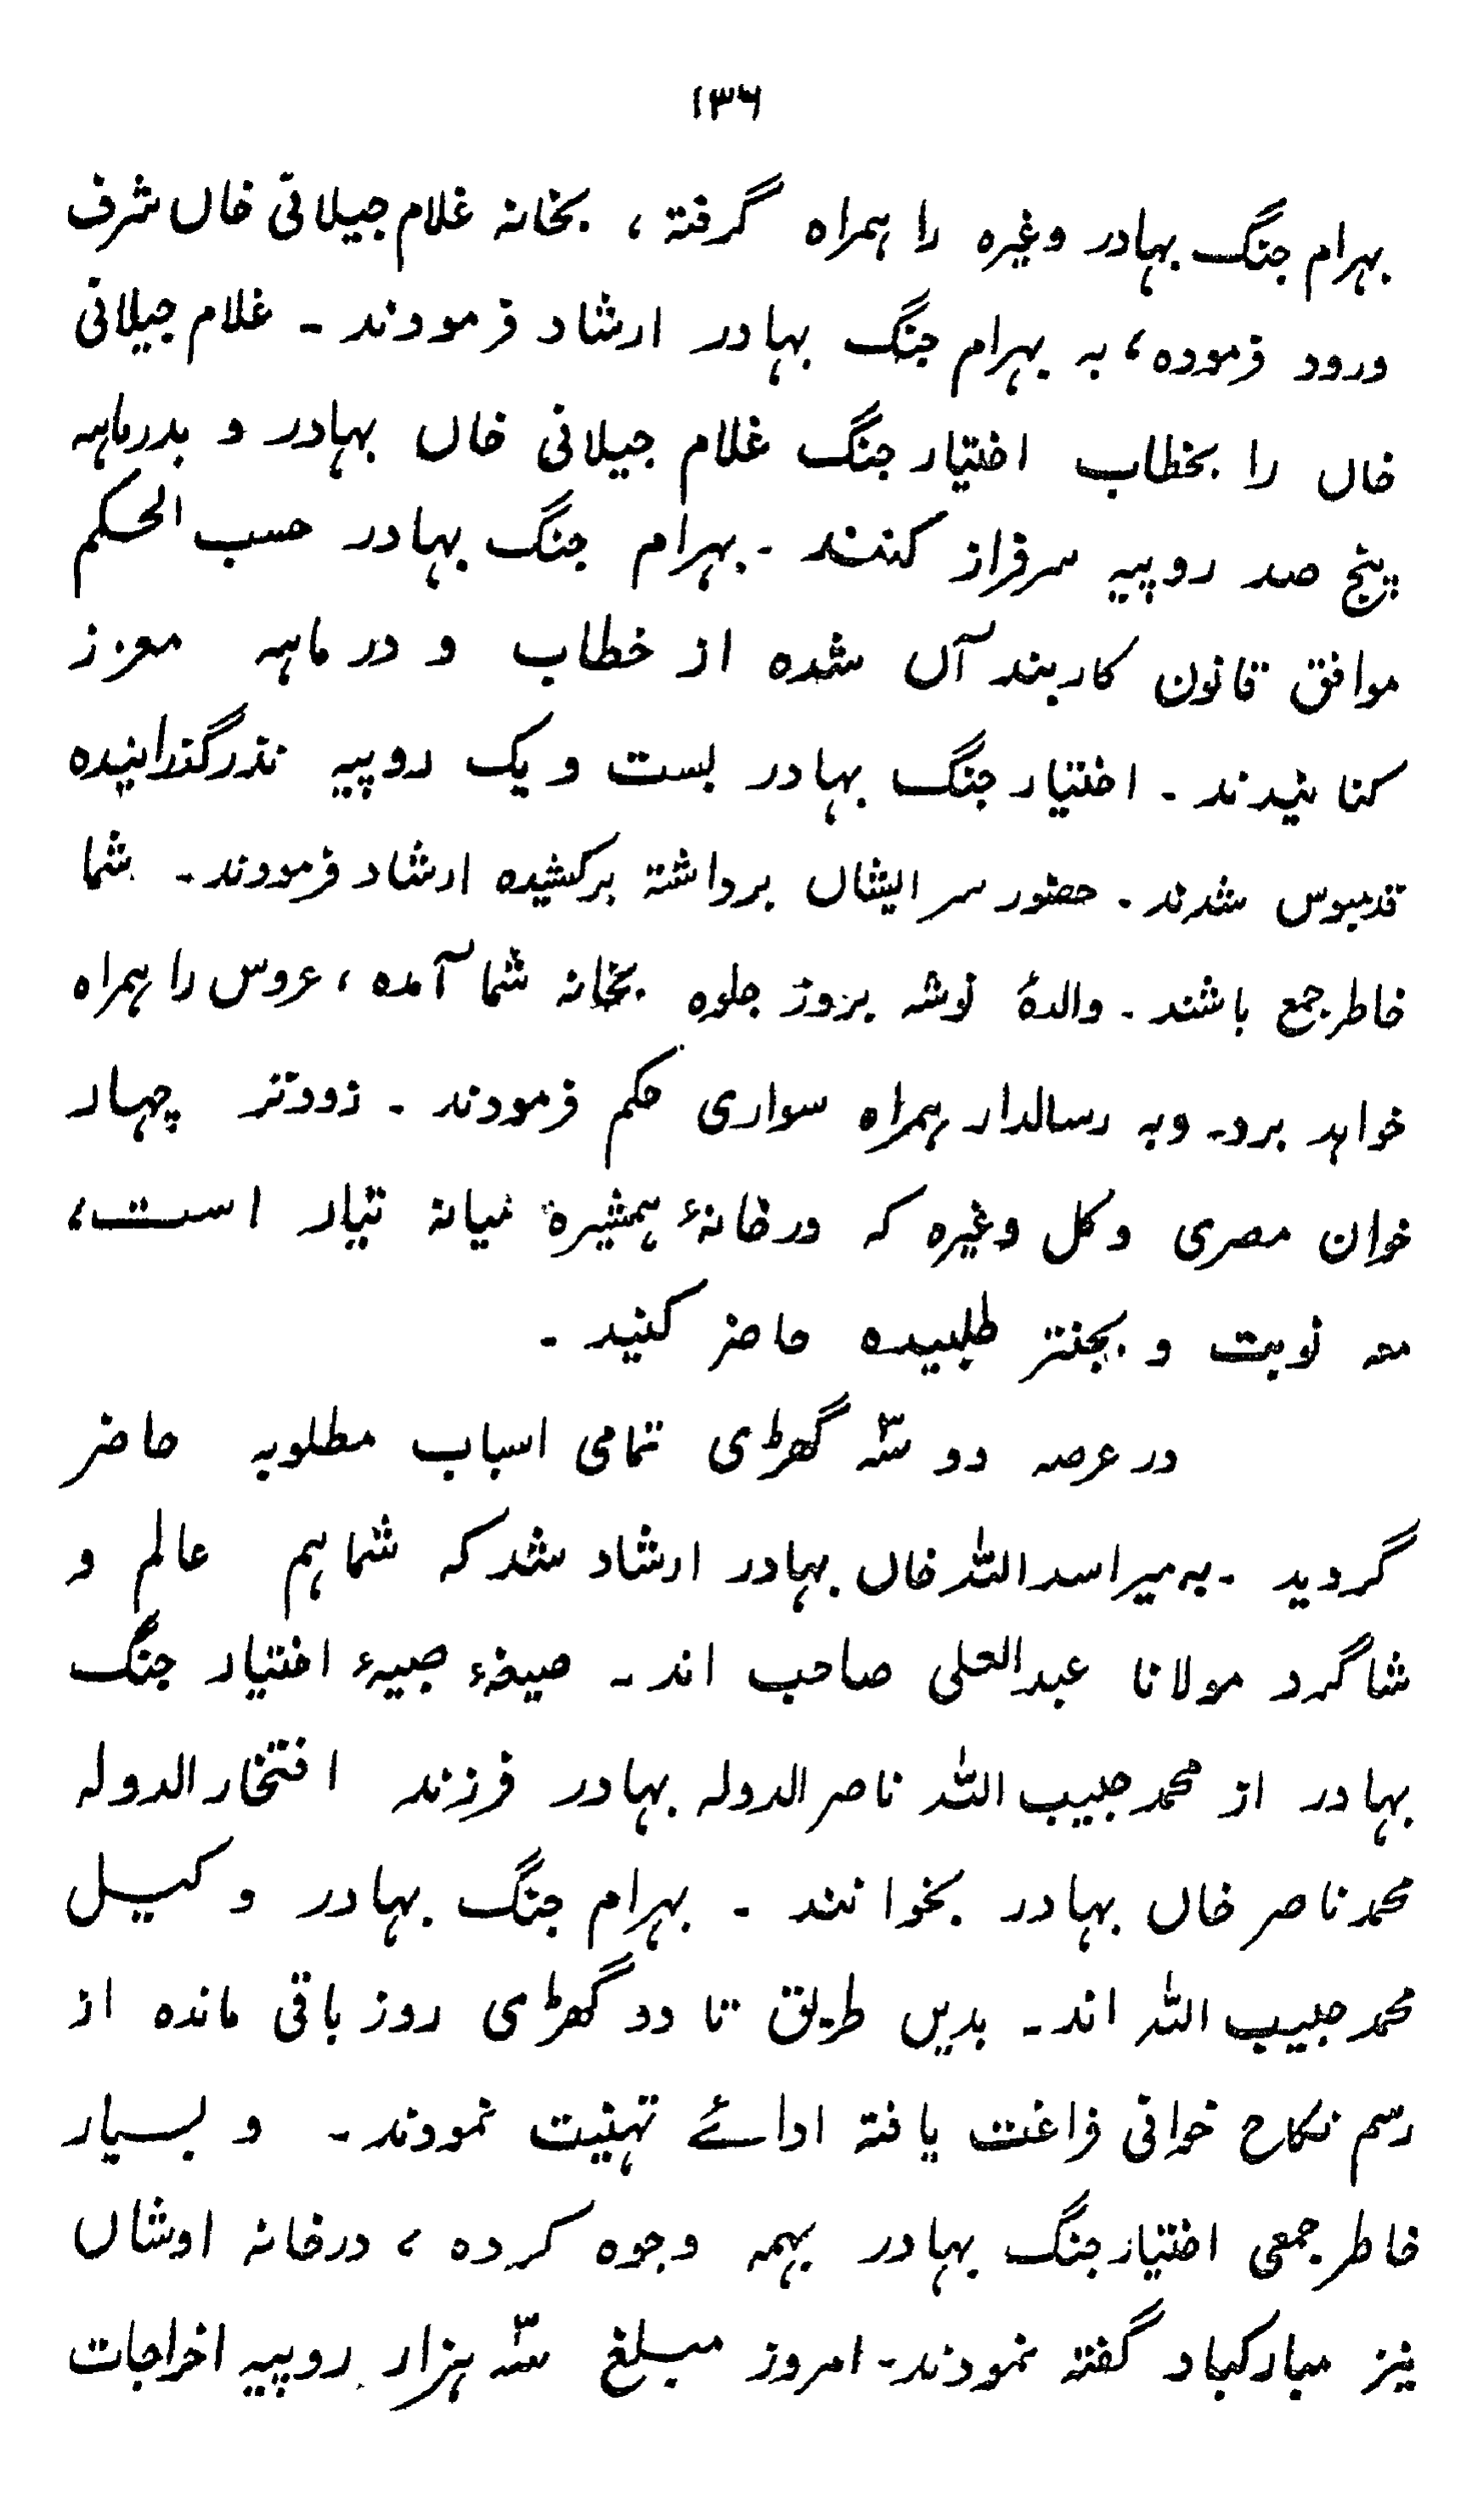 ۱۳۶
بہرام جنگ بہادر وغیرہ را ہمراہ گرفتہ ، بخانہ غلام جیلانی خاں شرف
ورود فرمودہ ، بہ بہرام جنگ بہادر ارشاد فرمودند ـ غلام جیلانی
خاں را بخطاب اختیار جنگ غلام جیلانی خاں بہادر و بدرماہہ
پنج صد روپیہ سرفراز کنند ـ بہرام جنگ بہادر حسب الحکم
موافق قانون کاربند آں شدہ از خطاب و درماہہ معزز
کنانیدند ـ اختیار جنگ بہادر بست و یک روپیہ نذر گذرانیدہ
قدمبوس شدند ـ حضور سر ایشاں برداشتہ برکشیدہ ارشاد فرمودند ـ شما
خاطر جمع باشند ـ والدۂ نوشہ بروز جلوہ بخانہ شما آمدہ ، عروس را ہمراہ
خواہد برد ـ وبہ رسالدار ہمراہ سواری حکم فرمودند ـ زودتر چہار
خوان مصری و گل وغیرہ کہ درخانۂ ہمشیرۂ میانہ تیار است ،
معہ نوبت و بجنتر طلبیدہ حاضر کنید ـ
در عرصہ دو سہ گھڑی تمامی اسباب مطلوبہ حاضر
گردید ـ بہ میر اسد اللہ خاں بہادر ارشاد شد کہ شما ہم عالم و
شاگرد مولانا عبدالعلی صاحب اند ـ صیغۂ صبیۂ اختیار جنگ
بہادر از محمد حبیب اللہ ناصر الدولہ بہادر فرزند افتخار الدولہ
محمد ناصر خاں بہادر بخوانند ـ بہرام جنگ بہادر وکیل
محمد حبیب اللہ اند ـ بدیں طریق تا دو گھڑی روز باقی ماندہ از
رسم نکاح خوانی فراغت یافتہ ادائے تہنیت نمودند ـ و بسیار
خاطر جمعی اختیار جنگ بہادر بہمہ وجوہ کردہ ، درخانہ اوشاں
نیز مبارکباد گفتہ نمودند ـ امروز مبلغ سہ ہزار روپیہ اخراجات